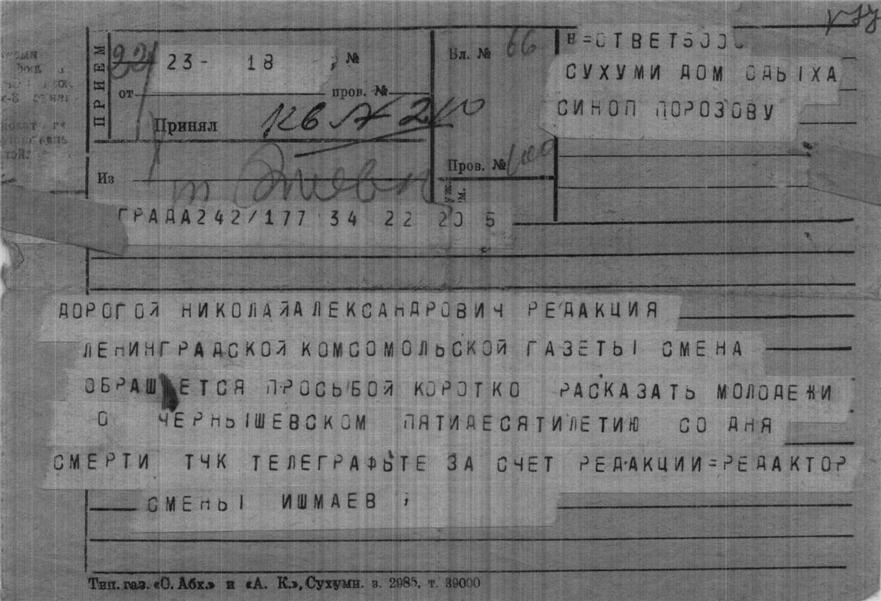 ПРИЕМ
23- 18
№
от
пров. №
Принял
Из
Вл. №
66
Пров. №
СУХУМИ ДОМ ОДЫХА
СИНОП ПОРОЗОВУ
ГРАДА242/177 34 22 20 5
ДОРОГОЙ НИКОЛАЙАЛЕКСАНДРОВИЧ РЕДАКЦИЯ
ЛЕНИНГРАДСКОЙ КОМСОМОЛЬСКОЙ ГАЗЕТЫ СМЕНА
ОБРАЩАЕТСЯ ПРОСЬБОЙ КОРОТКО РАСКАЗАТЬ МОЛОДЕЖИ
О ЧЕРНЫШЕВСКОМ ПЯТИДЕСЯТИЛЕТИЮ СО ДНЯ
СМЕРТИ ТЧК ТЕЛЕГРАФЬТЕ ЗА СЧЕТ РЕДАКЦИИ=РЕДАКТОР
СМЕНЫ ИШМАЕВ ;
Тип. газ. «С. Абх.» и «А. К.», Сухуми. з. 2985. т. 39000